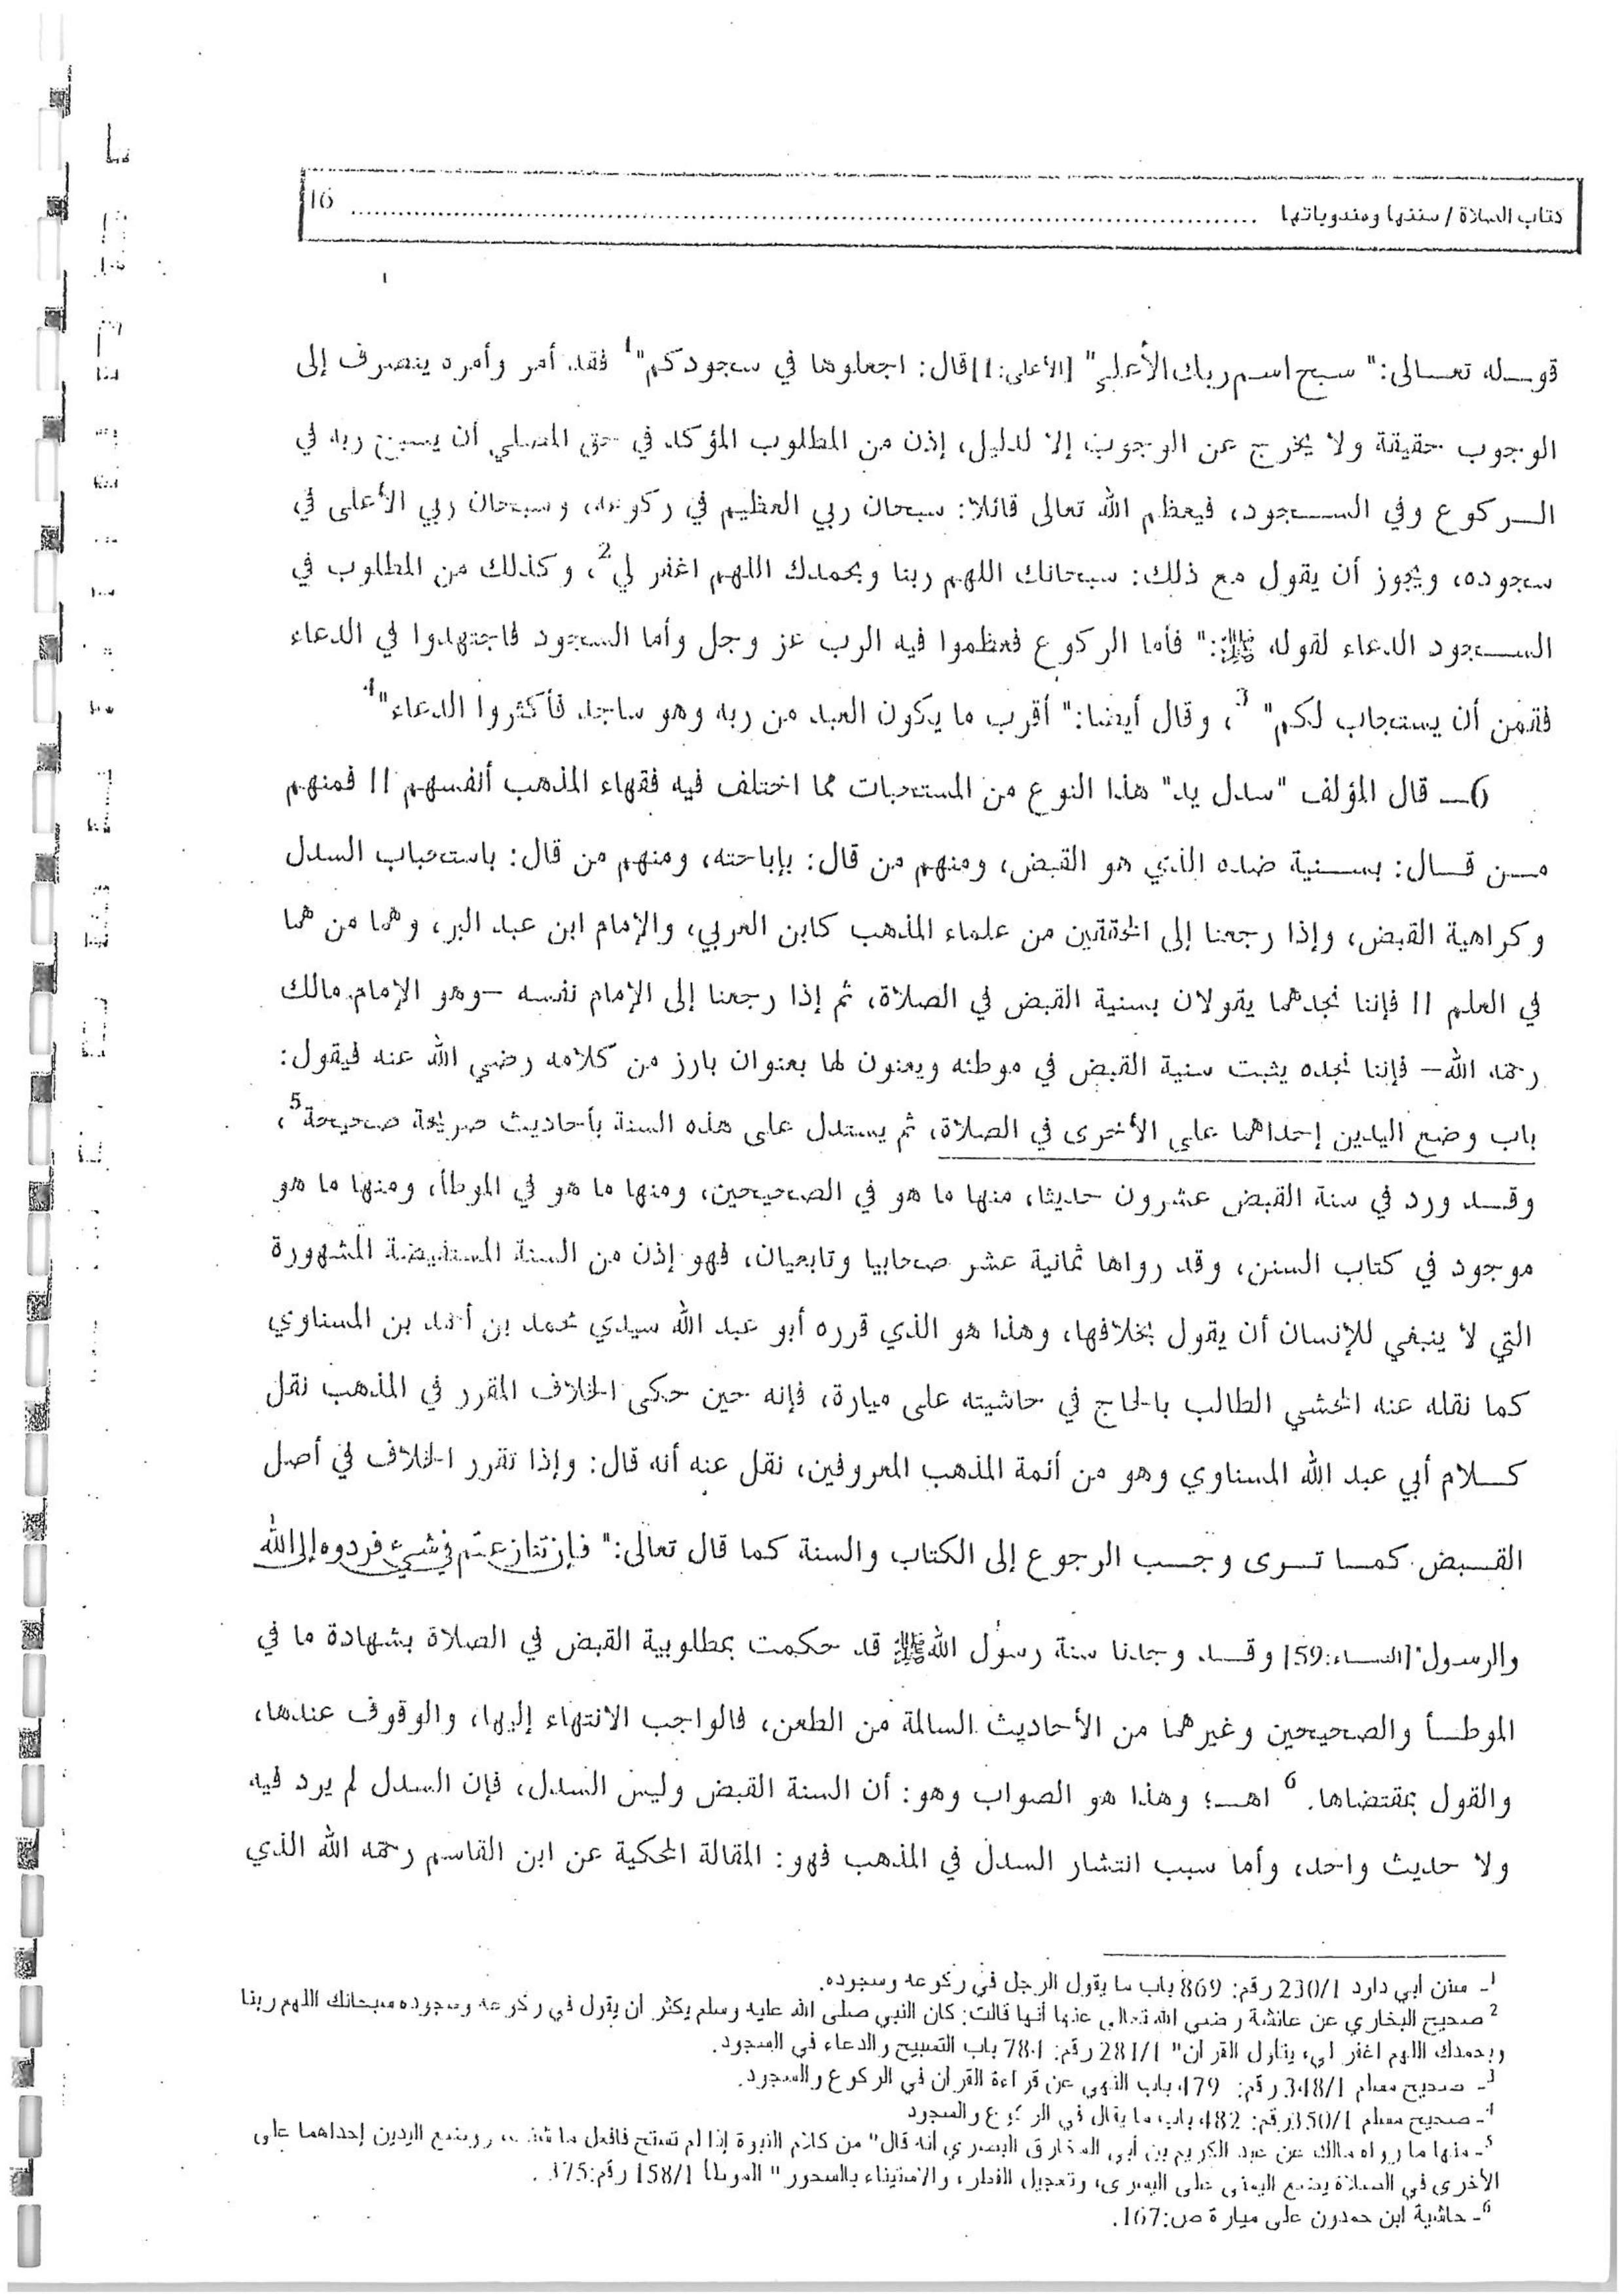 كتاب الصلاة / سننها ومندوباتها ........................ 16
قوله تعالى:" سبح اسم ربك الأعلى" [الأعلى:1] قال: اجعلوها في سجودكم"1 فقد أمر وأمره ينصرف إلى
الوجوب حقيقة ولا يخرج عن الوجوب إلا لدليل، إذن من المطلوب المؤكد في حق المصلي أن يسبح ربه في
الركوع وفي السجود، فيعظم الله تعالى قائلا: سبحان ربي العظيم في ركوعه، وسبحان ربي الأعلى في
سجوده، ويجوز أن يقول مع ذلك: سبحانك اللهم ربنا وبحمدك اللهم اغفر لي2، وكذلك من المطلوب في
السجود الدعاء لقوله ﷺ:" فأما الركوع فعظموا فيه الرب عز وجل وأما السجود فاجتهدوا في الدعاء
فقمن أن يستجاب لكم" 3، وقال أيضا:" أقرب ما يكون العبد من ربه وهو ساجد فأكثروا الدعاء"4
6ـ قال المؤلف "سدل يد" هذا النوع من المستحبات مما اختلف فيه فقهاء المذهب أنفسهم !! فمنهم
من قال: بسنية ضده الذي هو القبض، ومنهم من قال: بإباحته، ومنهم من قال: باستحباب السدل
وكراهية القبض، وإذا رجعنا إلى المحققين من علماء المذهب كابن العربي، والإمام ابن عبد البر، وهما من هما
في العلم !! فإننا نجدهما يقولان بسنية القبض في الصلاة، ثم إذا رجعنا إلى الإمام نفسه –وهو الإمام مالك
رحمه الله– فإننا نجده يثبت سنية القبض في موطئه ويعنون لها بعنوان بارز من كلامه رضي الله عنه فيقول:
باب وضع اليدين إحداهما على الأخرى في الصلاة، ثم يستدل على هذه السنة بأحاديث صريحة صحيحة5،
وقد ورد في سنة القبض عشرون حديثا، منها ما هو في الصحيحين، ومنها ما هو في الموطأ، ومنها ما هو
موجود في كتاب السنن، وقد رواها ثمانية عشر صحابيا وتابعيان، فهو إذن من السنة المستفيضة المشهورة
التي لا ينبغي للإنسان أن يقول بخلافها، وهذا هو الذي قرره أبو عبد الله سيدي محمد بن أحمد بن المسناوي
كما نقله عنه المحشي الطالب بالحاج في حاشيته على ميارة، فإنه حين حكى الخلاف المقرر في المذهب نقل
كلام أبي عبد الله المسناوي وهو من أئمة المذهب المعروفين، نقل عنه أنه قال: وإذا تقرر الخلاف في أصل
القبض كما ترى وجب الرجوع إلى الكتاب والسنة كما قال تعالى:" فإن تنازعتم في شيء فردوه إلى الله
والرسول"[النساء:59] وقد وجدنا سنة رسول الله ﷺ قد حكمت بمطلوبية القبض في الصلاة بشهادة ما في
الموطأ والصحيحين وغيرهما من الأحاديث السالمة من الطعن، فالواجب الانتهاء إليها، والوقوف عندها،
والقول بمقتضاها. 6 اهـ؛ وهذا هو الصواب وهو: أن السنة القبض وليس السدل، فإن السدل لم يرد فيه
ولا حديث واحد، وأما سبب انتشار السدل في المذهب فهو: المقالة المحكية عن ابن القاسم رحمه الله الذي
1ـ سنن أبي داود 230/1 رقم: 869 باب ما يقول الرجل في ركوعه وسجوده.
2 صحيح البخاري عن عائشة رضي الله تعالى عنها أنها قالت: كان النبي صلى الله عليه وسلم يكثر أن يقول في ركوعه وسجوده سبحانك اللهم ربنا
وبحمدك اللهم اغفر لي، يتأول القرآن" 281/1 رقم: 784 باب التسبيح والدعاء في السجود.
3ـ صحيح مسلم 348/1 رقم: 479 باب النهي عن قراءة القرآن في الركوع والسجود.
4ـ صحيح مسلم 350/1 رقم: 482 باب ما يقال في الركوع والسجود
5ـ منها ما رواه مالك عن عبد الكريم بن أبي المخارق البصري أنه قال" من كلام النبوة إذا لم تستح فافعل ما شئت، ووضع اليدين إحداهما على
الأخرى في الصلاة يضع اليمنى على اليسرى، وتعجيل الفطر، والاستيناء بالسحور" الموطأ 158/1 رقم:375.
6ـ حاشية ابن حمدون على ميارة ص:167.